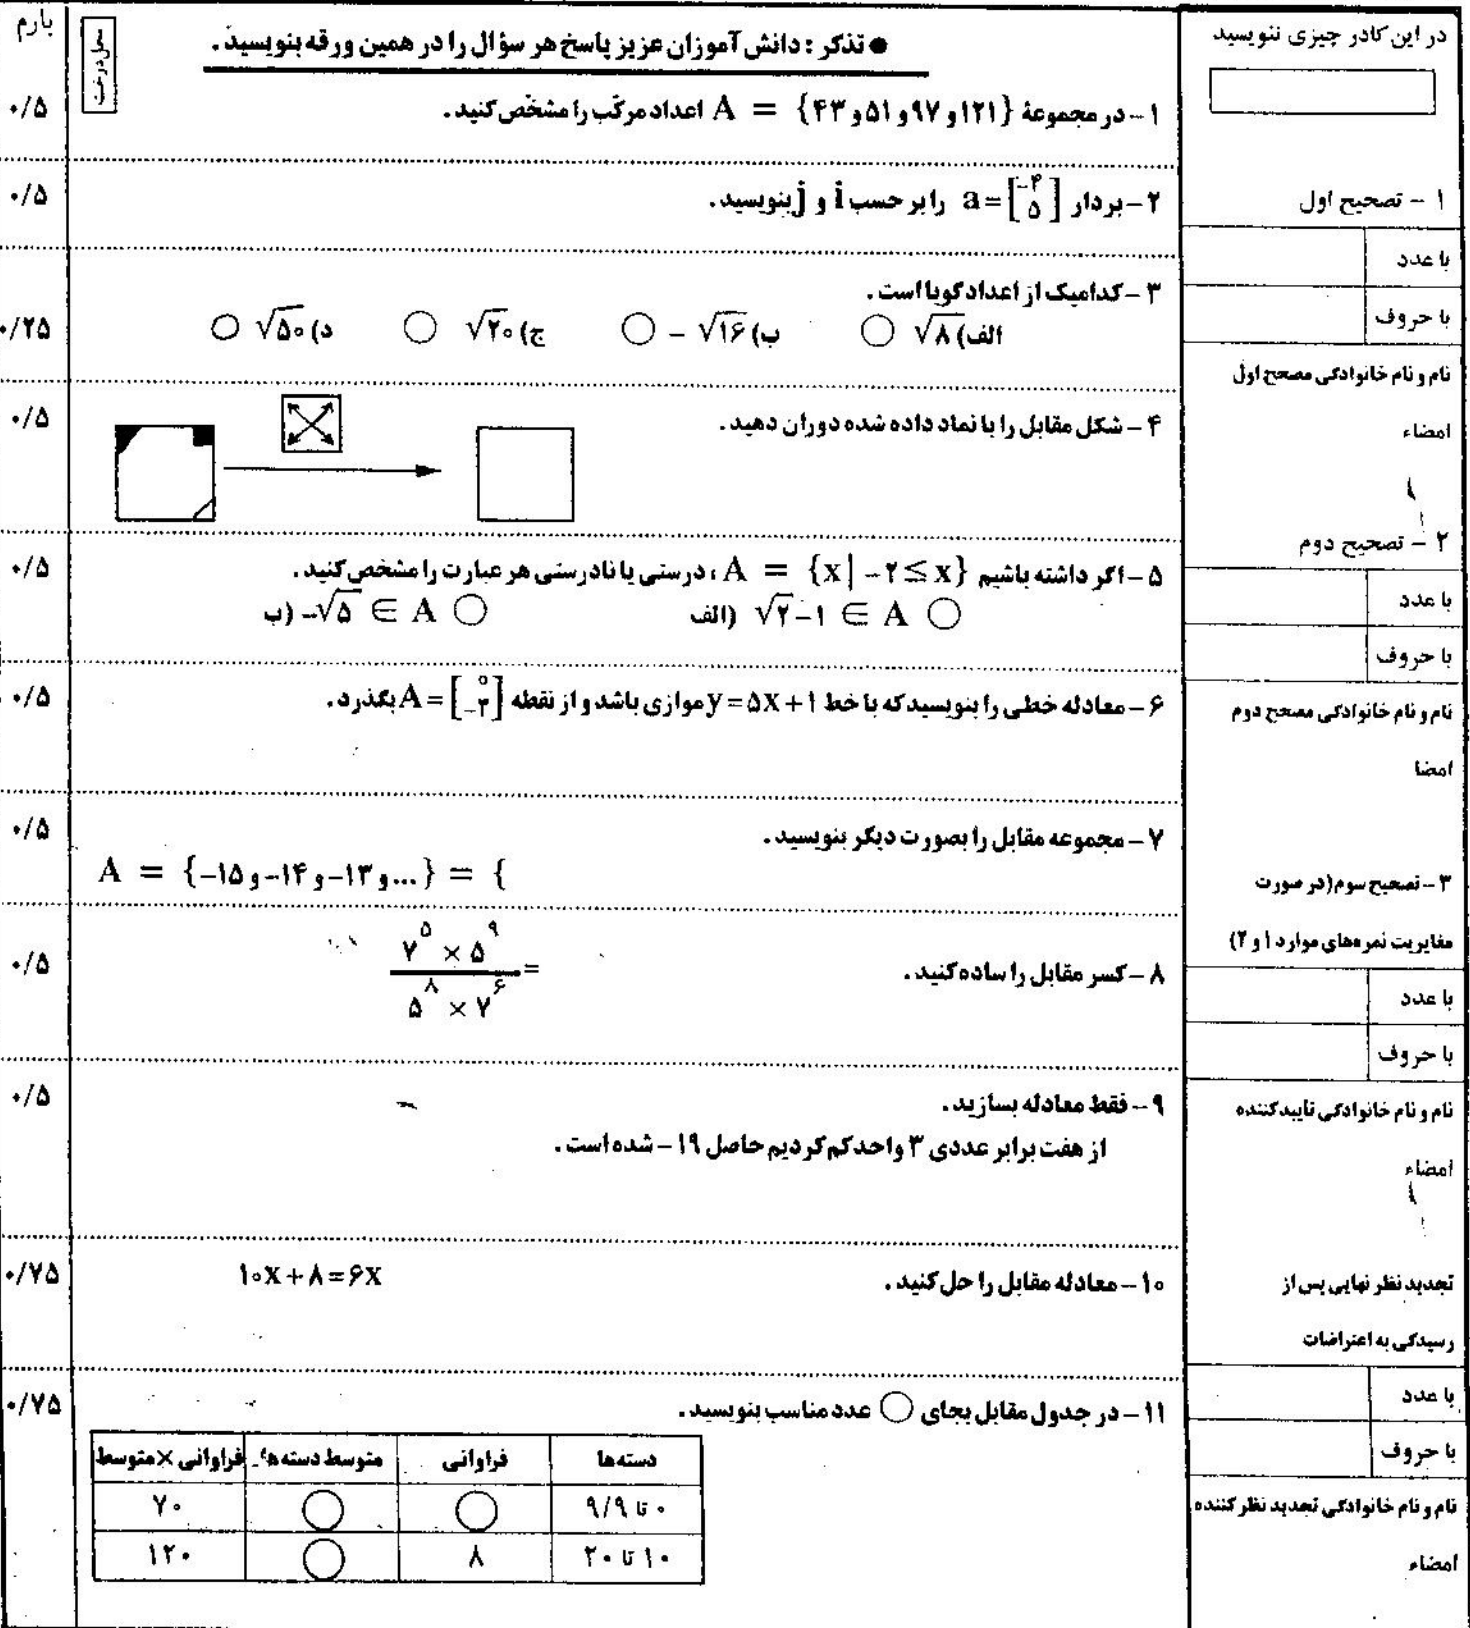 در این کادر چیزی ننویسید
۱ - تصحیح اول
با عدد
با حروف
نام و نام خانوادگی مصحح اول
امضاء
۲ - تصحیح دوم
با عدد
با حروف
نام و نام خانوادگی مصحح دوم
امضا
۳ - تصحیح سوم (در صورت
مغایرت نمره‌های موارد ۱ و ۲)
با عدد
با حروف
نام و نام خانوادگی تأیید کننده
امضاء
تجدید نظر نهایی پس از
رسیدگی به اعتراضات
با عدد
با حروف
نام و نام خانوادگی تجدید نظر کننده
امضاء
● تذکر : دانش آموزان عزیز پاسخ هر سؤال را در همین ورقه بنویسید .
بارم
۱ - در مجموعهٔ A = {۴۳ و ۵۱ و ۹۷ و ۱۲۱} اعداد مرکّب را مشخّص کنید .
۰/۵
۲ - بردار a = [-۴ ۵] را بر حسب i و j بنویسید .
۰/۵
۳ - کدامیک از اعداد گویا است .
الف) √۸ ○ ب) -√۱۶ ○ ج) √۲۰ ○ د) √۵۰ ○
۰/۲۵
۴ - شکل مقابل را با نماد داده شده دوران دهید .
۰/۵
۵ - اگر داشته باشیم A = {x | -۲ ≤ x} ، درستی یا نادرستی هر عبارت را مشخص کنید .
۰/۵
الف) √۲ - ۱ ∈ A ○ ب) -√۵ ∈ A ○
۶ - معادله خطی را بنویسید که با خط y = ۵x + ۱ موازی باشد و از نقطه A = [۰ -۳] بگذرد .
۰/۵
۷ - مجموعه مقابل را بصورت دیگر بنویسید .
۰/۵
A = {-۱۵ و -۱۴ و -۱۳ و ...} = {
۸ - کسر مقابل را ساده کنید .
۷^۵ × ۵^۹ / ۵^۸ × ۷^۶ =
۰/۵
۹ - فقط معادله بسازید .
۰/۵
از هفت برابر عددی ۳ واحد کم کردیم حاصل ۱۹ - شده است .
۱۰ - معادله مقابل را حل کنید .
۱۰x + ۸ = ۶x
۰/۷۵
۱۱ - در جدول مقابل بجای ○ عدد مناسب بنویسید .
۰/۷۵
دسته‌ها فراوانی متوسط دسته ها فراوانی × متوسط
۰ تا ۹/۹ ○ ○ ۷۰
۱۰ تا ۲۰ ۸ ○ ۱۲۰